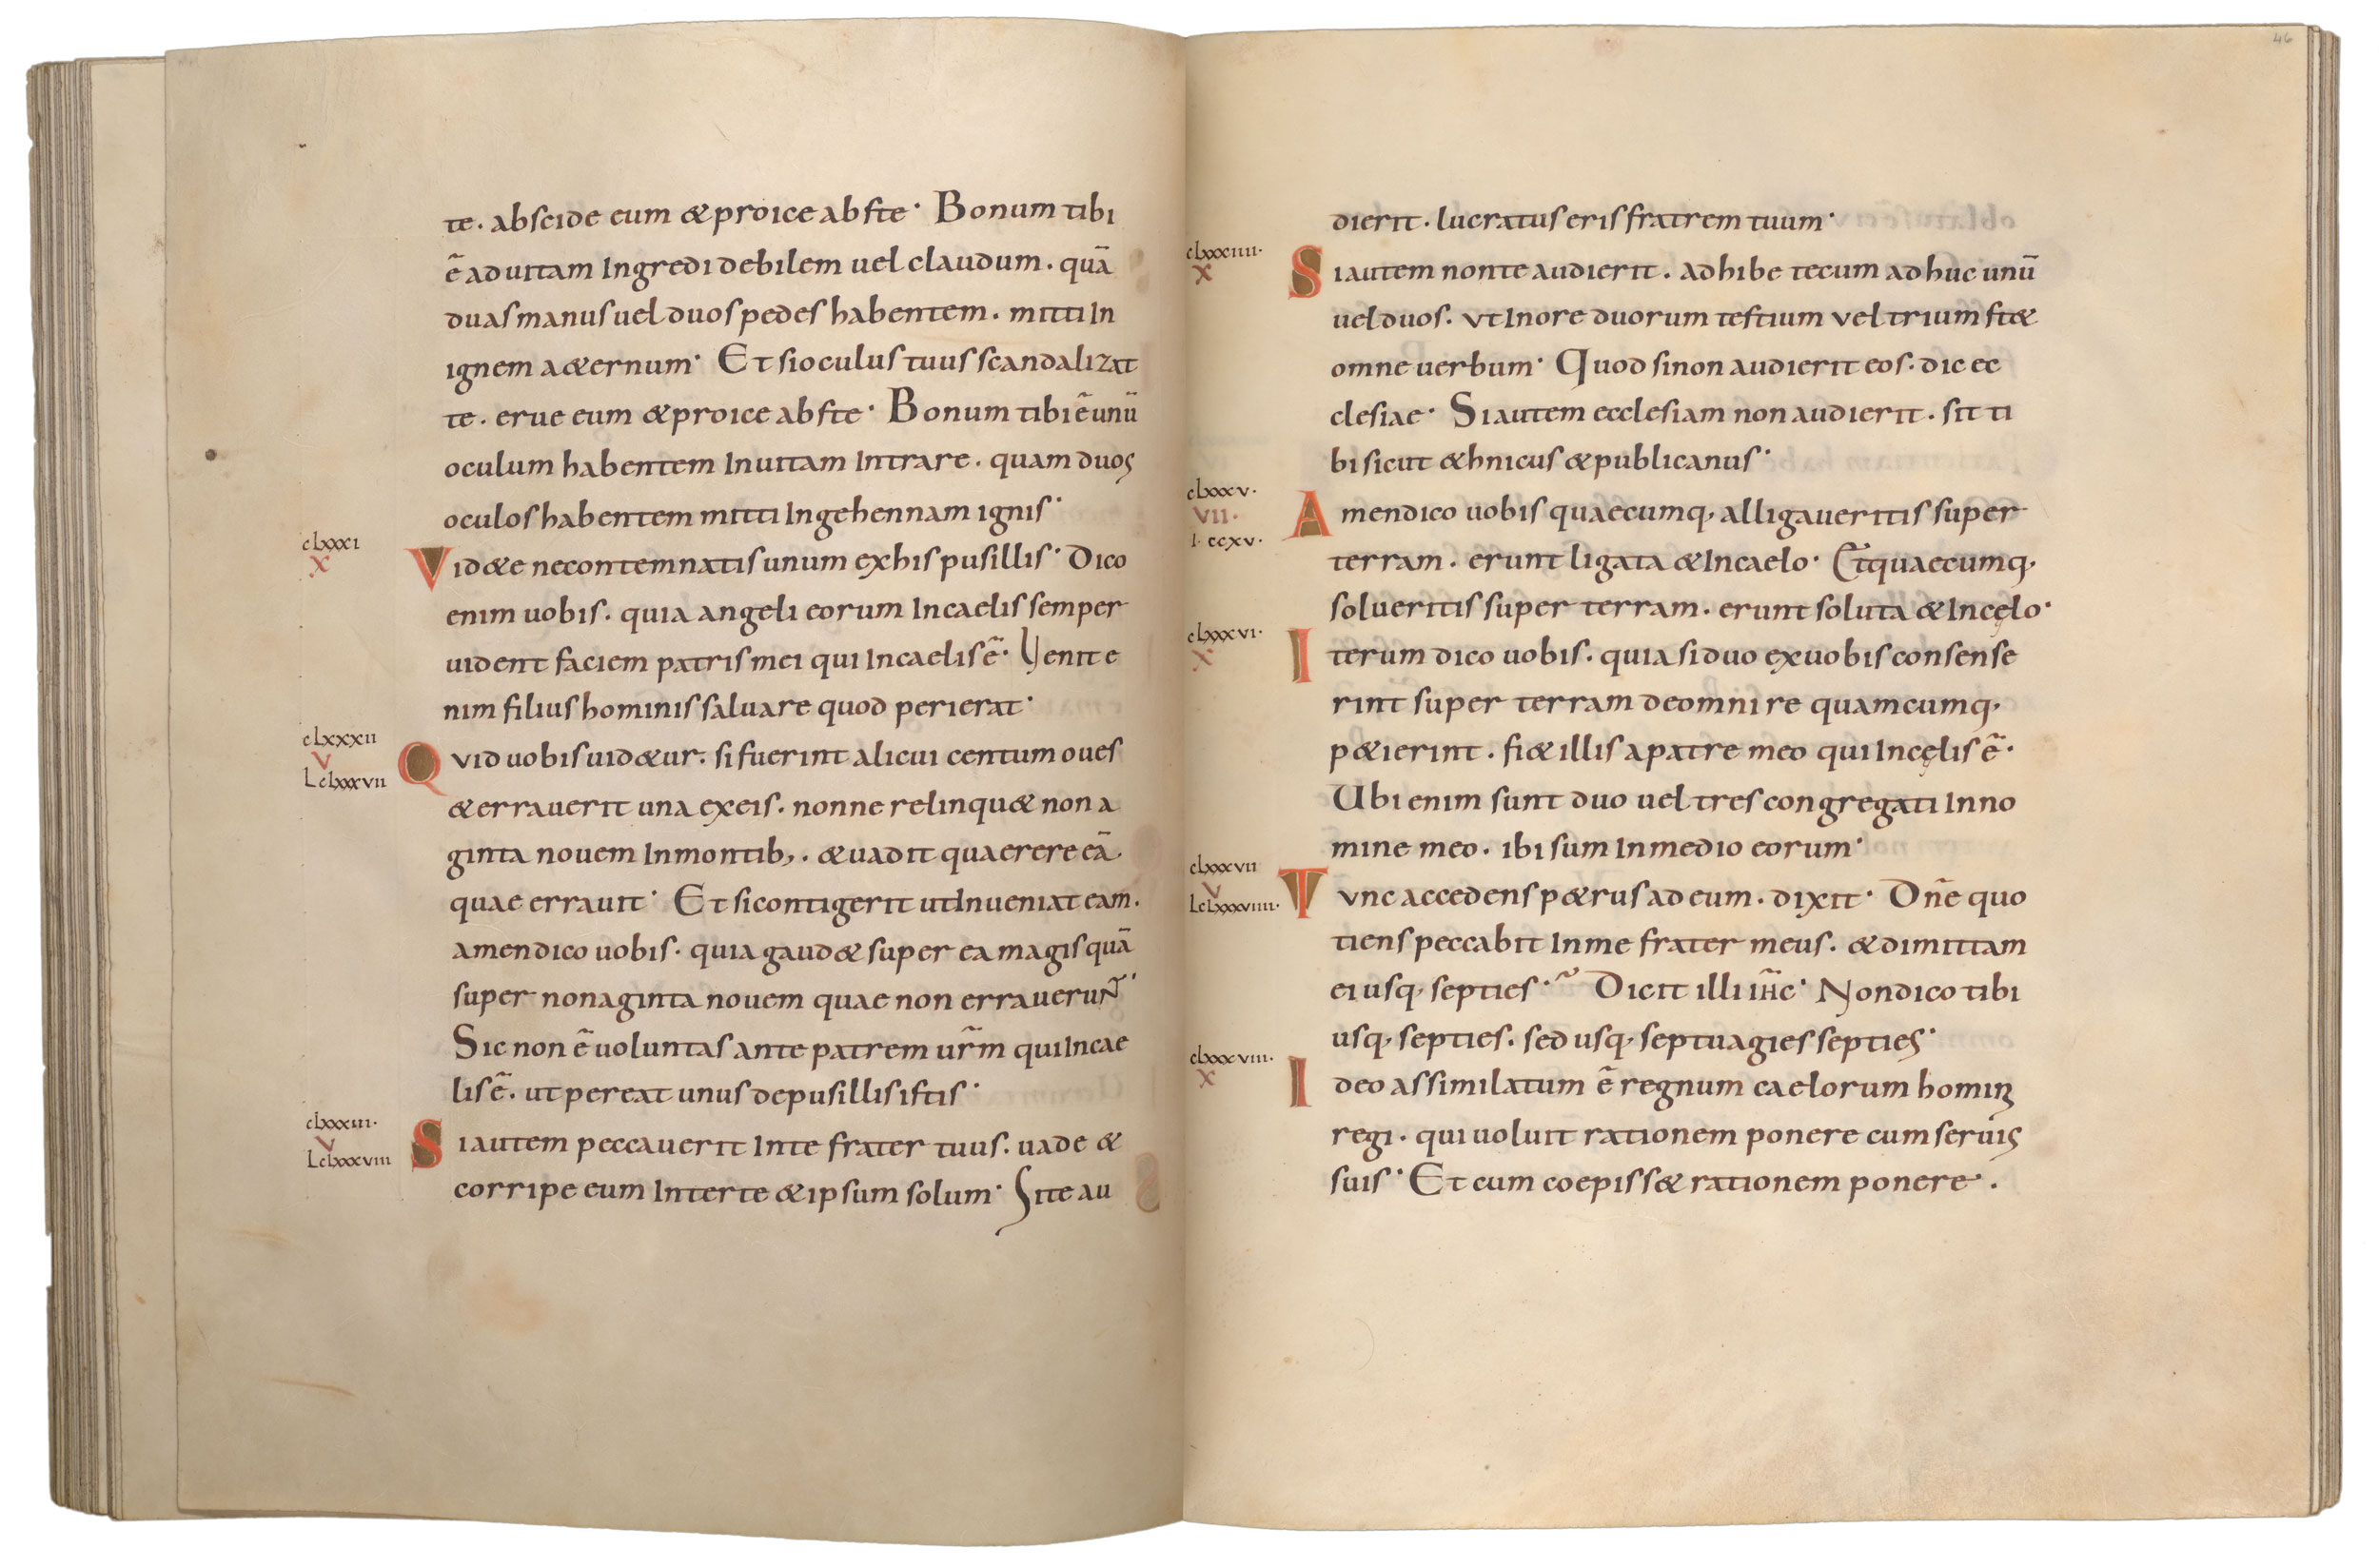 te. abscide eum & proice abste· Bonum tibi
ē ad uitam Ingredi debilem uel claudum. quā
duas manus uel duos pedes habentem. mitti In
ignem a&ernum· Et si oculus tuus scandalizat
te. erue eum & proice abste· Bonum tibi ē unū
oculum habentem In uitam Intrare. quam duos
oculos habentem mitti In gehennam ignis·
clxxxi
X
Vid&e ne contemnatis unum ex his pusillis· Dico
enim uobis. quia angeli eorum In caelis semper
uident faciem patris mei qui In caelis ē· Uenit e
nim filius hominis saluare quod perierat·
clxxxii
V
L clxxxvii
Quid uobis uid&ur. si fuerint alicui centum oues
& errauerit una ex eis. nonne relinqu& nona
ginta nouem In montib;. & uadit quaerere eā.
quae errauit· Et si contigerit ut Inueniat eam.
amen dico uobis. quia gaud& super ea magis quā
super nonaginta nouem quae non errauerunt·
Sic non ē uoluntas ante patrem ur̄m qui In cae
lis ē. ut pereat unus de pusillis istis·
clxxxiii·
V
L clxxxviii
Si autem peccauerit In te frater tuus. uade &
corripe eum Inter te & ipsum solum· Si te au
46
dierit. lucratus eris fratrem tuum·
clxxxiiii·
X
Si autem non te audierit. adhibe tecum adhuc unū
uel duos. ut In ore duorum testium uel trium st&
omne uerbum· Quod si non audierit eos. dic ec
clesiae· Si autem ecclesiam non audierit. sit ti
bi sicut &hnicus & publicanus·
clxxxv·
VII·
I· ccxv·
Amen dico uobis quaecumq; alligaueritis super
terram. erunt ligata & In caelo· Et quaecumq;
solueritis super terram. erunt soluta & In cęlo·
clxxxvi·
X
Iterum dico uobis. quia si duo ex uobis consense
rint super terram de omni re quamcumq;
p&ierint. fi& illis a patre meo qui In cęlis ē·
Ubi enim sunt duo uel tres congregati In no
mine meo. ibi sum In medio eorum·
clxxxvii
V
L clxxxviiii·
Tunc accedens p&rus ad eum. dixit· Dn̄e quo
tiens peccabit In me frater meus. & dimittam
ei usq; septies· Dicit illi ih̄c· Non dico tibi
usq; septies. sed usq; septuagies septies·
clxxxviii·
X
Ideo assimilatum ē regnum caelorum homini
regi. qui uoluit rationem ponere cum seruis
suis· Et cum coepiss& rationem ponere.